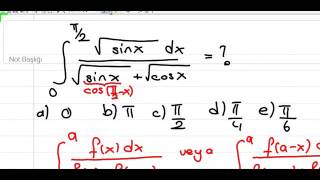 Not Başlığı
∫₀^{π/2} √sinx dx / (√sinx + √cosx) = ?
cos(π/2-x)
a) 0 b) π c) π/2 d) π/4 e) π/6
∫₀^a f(x) dx veya ∫^a f(a-x) d